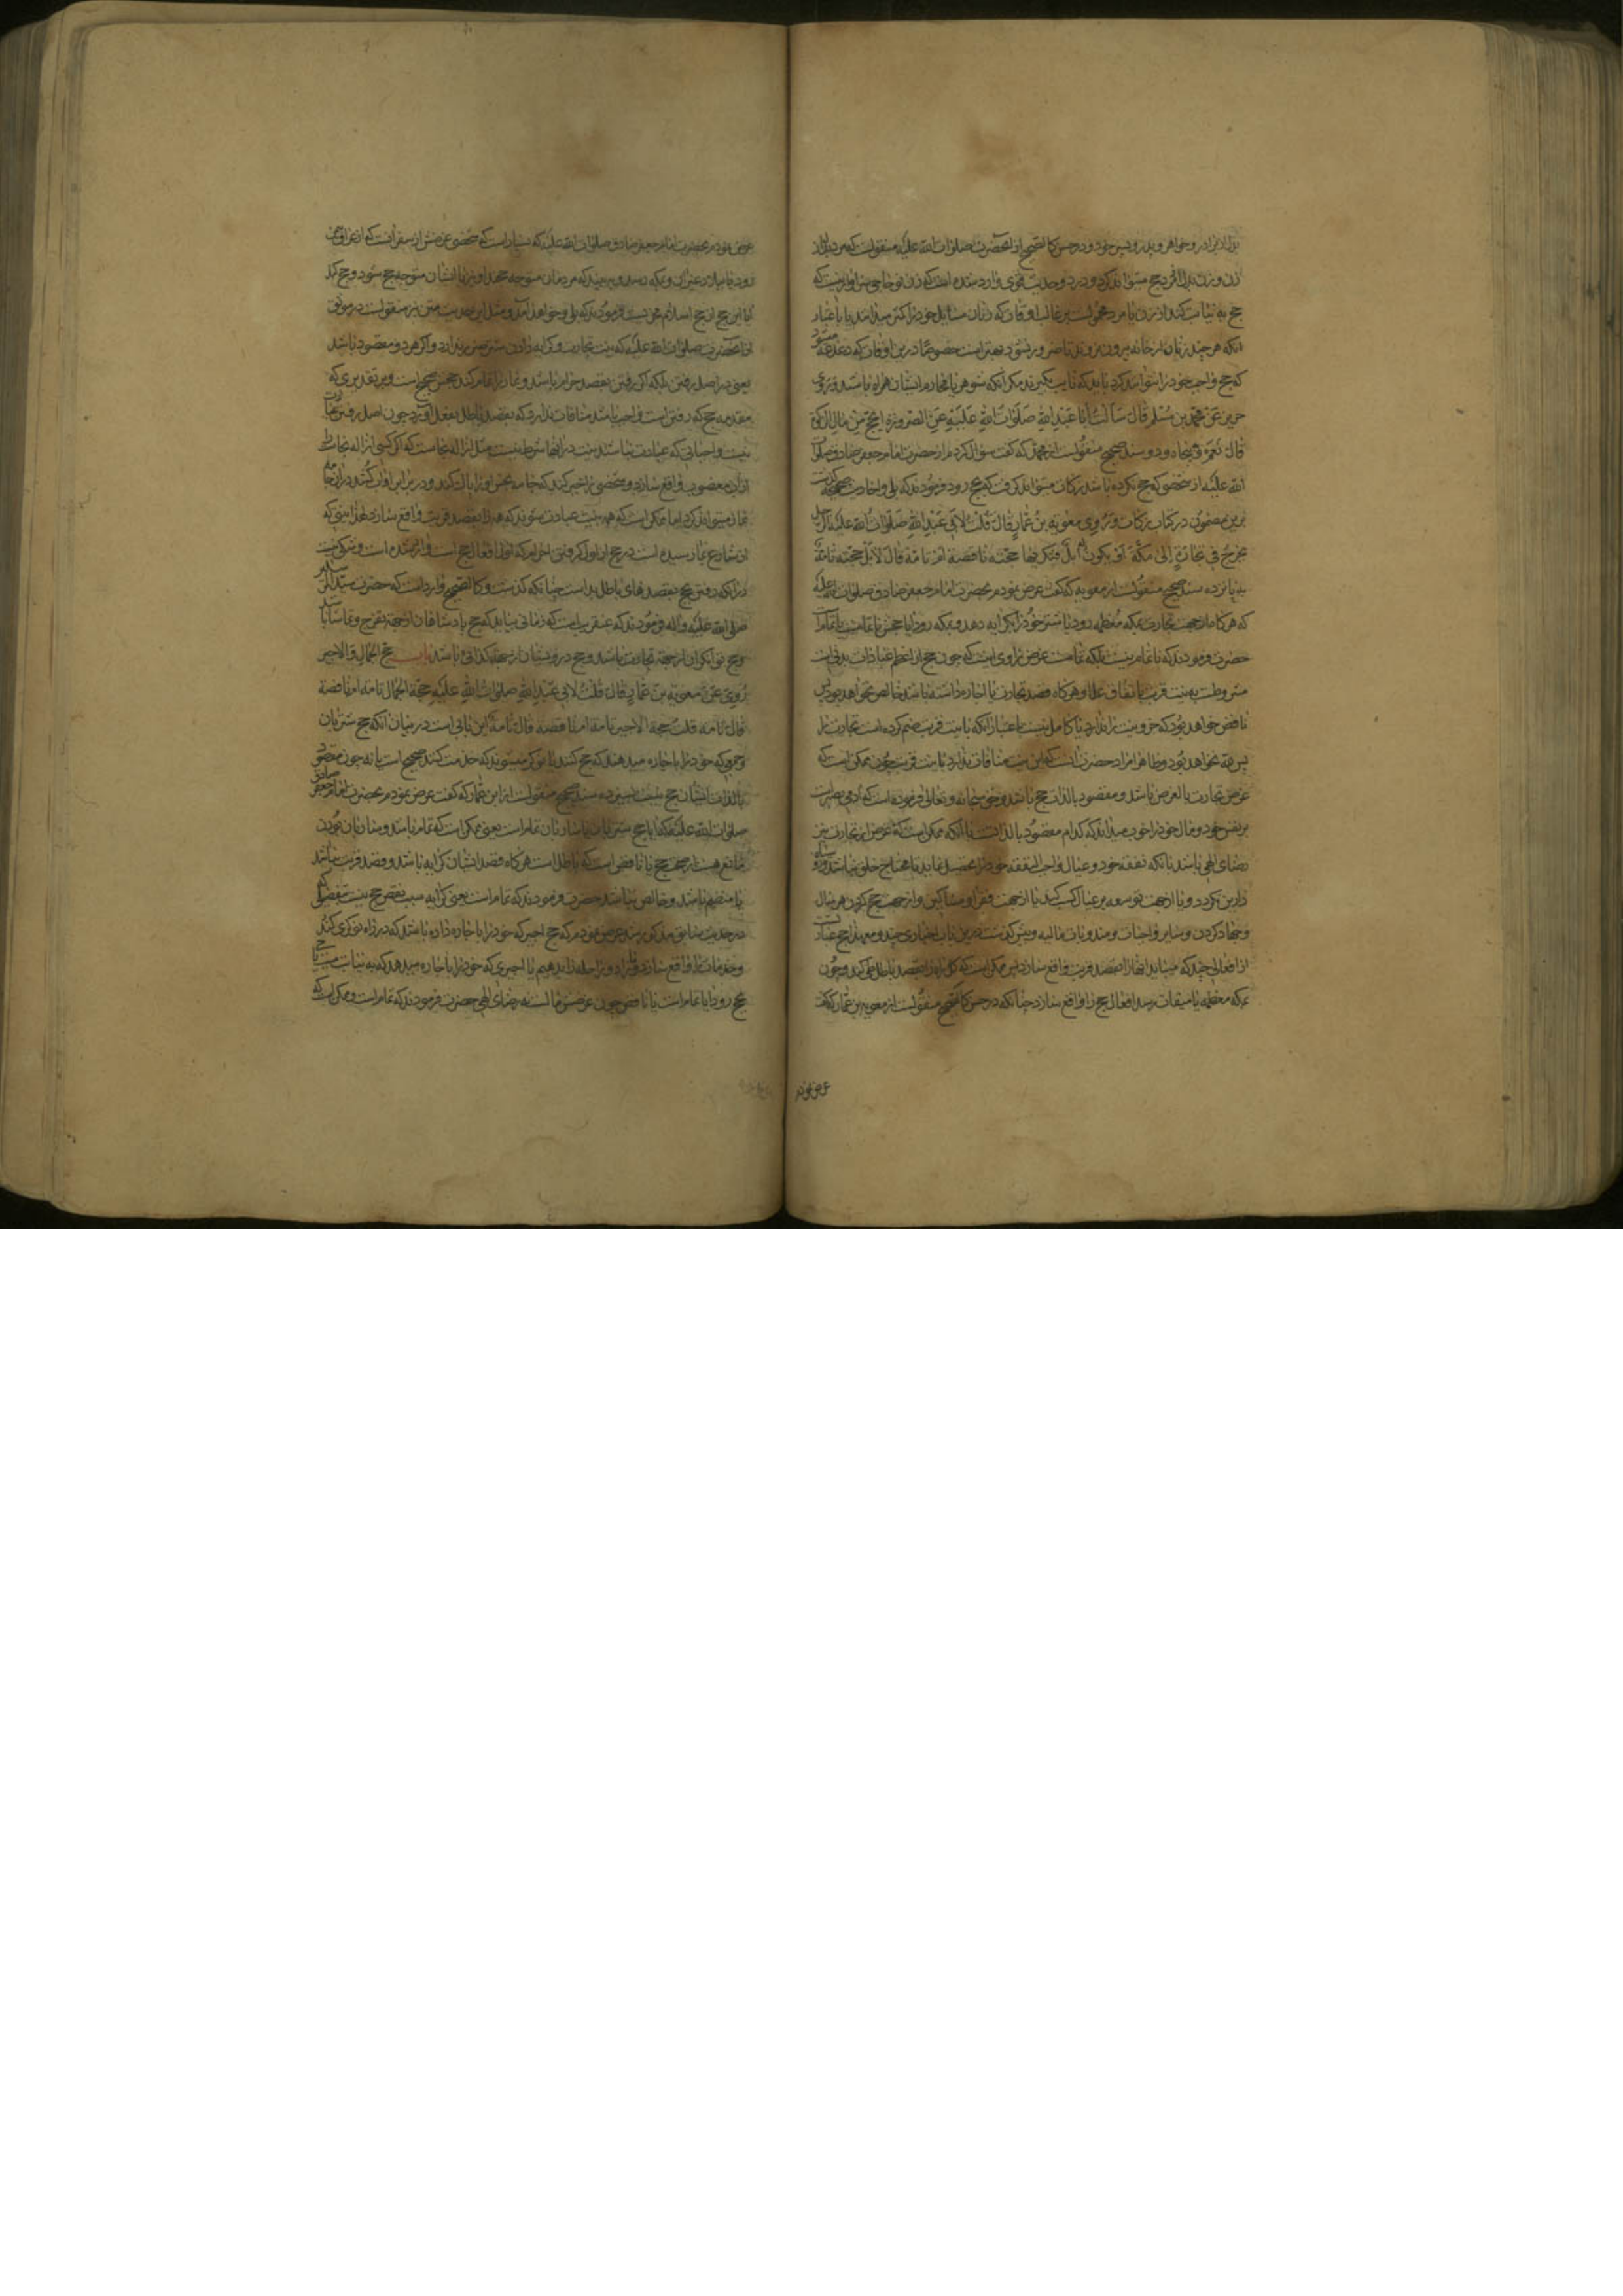 بدل از برادر و خواهر و پدر و پسر خود و در حسن کالصحیح از آنحضرت صلوات الله علیه منقولست که مرد بدل از
زن و زن بدل از مرد حج میتواند کرد و در دو حدیث قوی وارد شده است که
حج به نیابت کند از زن یا مرد محمولست بر غالب اوقات که زنان مسایل خود را کمتر میدانند یا باعتبار
آنکه هر چند زنان از خانه بیرون نروند تا ضرور نشود بهتر است خصوصا درین اوقات که
که حج واجب خود را نتوانند کرد باید که نایب بگیرند مگر آنکه شوهر یا محارم ایشان همراه باشند و روی
حریز عن محمد بن مسلم قال سألت أبا عبد الله صلوات الله علیه عن الصرورة ایحج من مال الزکوة
قال نعم و پنجاه و دو سند صحیح منقولست از محمد که گفت سؤال کردم از حضرت امام جعفر صادق صلوات
الله علیه از شخصی که حج نکرده باشد زکات میتواند گرفت که بحج رود فرمودند که بلی و احادیث صحیحه گذشت
برین مضمون در کتاب زکات و روی معویة بن عمار قال قلت لابی عبد الله صلوات الله علیه الرجل
یخرج فی تجارة إلی مکة أو یکون له إبل فیکریها حجته ناقصة أم تامة قال لا بل حجته تامة
به پانزده سند صحیح منقولست از معویه که گفت عرض نمودم بحضرت امام جعفر صادق صلوات الله علیه
که هر گاه از جهت تجارت بمکه معظمه رود یا شتر خود را بکرایه دهد و بمکه رود آیا حجش ناتمامست یا تمام است
حضرت فرمودند که ناتمام نیست بلکه تمامست غرض راوی اینست که چون حج از اعظم عبادات بدنی است
مشروطست به نیت قربت باتفاق علما و هر گاه قصد تجارت یا اجاره داشته باشد خالص نخواهد بود پس
ناقص خواهد بود که جزو نیت را ندارد یا کامل نیست باعتبار آنکه با نیت قربت ضم کرده است تجارت را
پس حجة نخواهد بود و ظاهرا مراد حضرت آنست که این نیت منافات ندارد با نیت قربت چون ممکن است که
غرض تجارت بالعرض باشد و مقصود بالذات حج باشد و حق سبحانه و تعالی فرموده است که آدمی بصیر است
بر نفس خود و مآل خود را خوب میداند که کدام مقصود بالذات است با آنکه ممکن است که غرض از تجارت نیز
رضای الهی باشد بآنکه نفقه خود و عیال واجب النفقه خود را تحصیل نماید تا محتاج خلق نباشد
دارین نگردد و یا از جهت توسعه بر عیال کسب کند یا از جهت فقرا و مساکین و از جهت حج کردن هر سال
و جهاد کردن و سایر واجبات و مندوبات مالیه و پیش گذشت درین باب اخباری چند و معهذا حج عبارتست
از افعالی چند که میباید آنها را بقصد قربت واقع سازد پس ممکن است که کل راه را بقصد باطل طی کند و چون
بمکه معظمه یا میقات رسد افعال حج را واقع سازد چنانکه در حسن کالصحیح منقولست از معویة بن عمار که گفت
عرض نمودم
عرض نمودم بحضرت امام جعفر صادق صلوات الله علیه که بسیار است که شخصی غرضش از سفر آنست که از عراق بیمن
رود یا ببلاد غیر آن و بمکه رسد و ببیند که مردمان متوجه حجند او نیز با ایشان متوجه حج شود و حج کند
آیا این حج از حج اسلام مجزیست فرمودند که بلی و خواهد آمد و مثل این حدیث متن نیز منقولست در موثق
از آنحضرت صلوات الله علیه که نیت تجارت و کرایه دادن شتر ضرر ندارد و اگر هر دو مقصود باشد
یعنی در اصل رفتن بلکه اگر رفتن بقصد حرام باشد و نماز را تمام کند حجش صحیح است و بر تقدیری که
مقدمه حج که رفتن است واجب باشد منافات ندارد که بقصد باطل بفعل آورد چون اصل رفتن عبارت
نیست و واجباتی که عبادت نباشد نیت در آنها شرط نیست مثل ازاله نجاست که اگر کسی ازاله نجاست
از آب مغصوب واقع سازد و شخصی را جبر کند که جامه نجس او را پاک کند و در برابر او آن کند در آن جامه
نماز میتواند کرد اما ممکن است که همه نیت عبادت شوند که همه را بقصد قربت واقع سازد لهذا مبنی که
از شارع بما رسیده است در حج از اول گرفتن احرام که اول افعال حج است وارد شده است و شکی نیست
در آنکه رفتن حج بقصدهای باطل بد است چنانکه گذشت و کالصحیح وارد است که حضرت سید المرسلین
صلی الله علیه و آله فرمودند که عنقریب است که زمانی بیاید که حج پادشاهان از جهة تفرج و تماشا باشد
و حج توانگران از جهة تجارت باشد و حج درویشان از جهة گدائی باشد باب حج الجمال و الاجیر
روی عن معویة بن عمار قال قلت لابی عبد الله صلوات الله علیه حجة الجمال تامة ام ناقصة
قال تامة قلت حجة الاجیر تامة ام ناقصة قال تامة این بابی است در بیان آنکه حج شتربان
و جمعی که خود را باجاره میدهند که حج کنند یا نوکر میشوند که خدمت کنند صحیح است یا نه چون مقصود
بالذات ایشان حج نیست بسیزده سند صحیح منقولست از ابن عمار که گفت عرض نمودم بحضرت امام جعفر صادق
صلوات الله علیه که آیا حج شتربان یا ساربان تمام است یعنی ممکن است که تمام باشد و ساربان بودن
مانع نیست از صحت حج یا ناقص است که باطل است هر گاه قصد ایشان کرایه باشد و قصد قربت نباشد
یا منضم باشد و خالص نباشد حضرت فرمودند که تمام است یعنی کرایه سبب نقص حج نیست بتفصیلی که
در حدیث سابق مذکور شد عرض نمودم که حج اجیر که خود را باجاره داده باشد که در راه نوکری کند
و خدمات را واقع سازد و زاد و راحله را بدهیم یا اجیری که خود را باجاره میدهد که به نیابت میت یا حی
بحج رود آیا تمام است یا ناقص چون غرضش مالست نه رضای الهی حضرت فرمودند که تمام است و ممکن است که